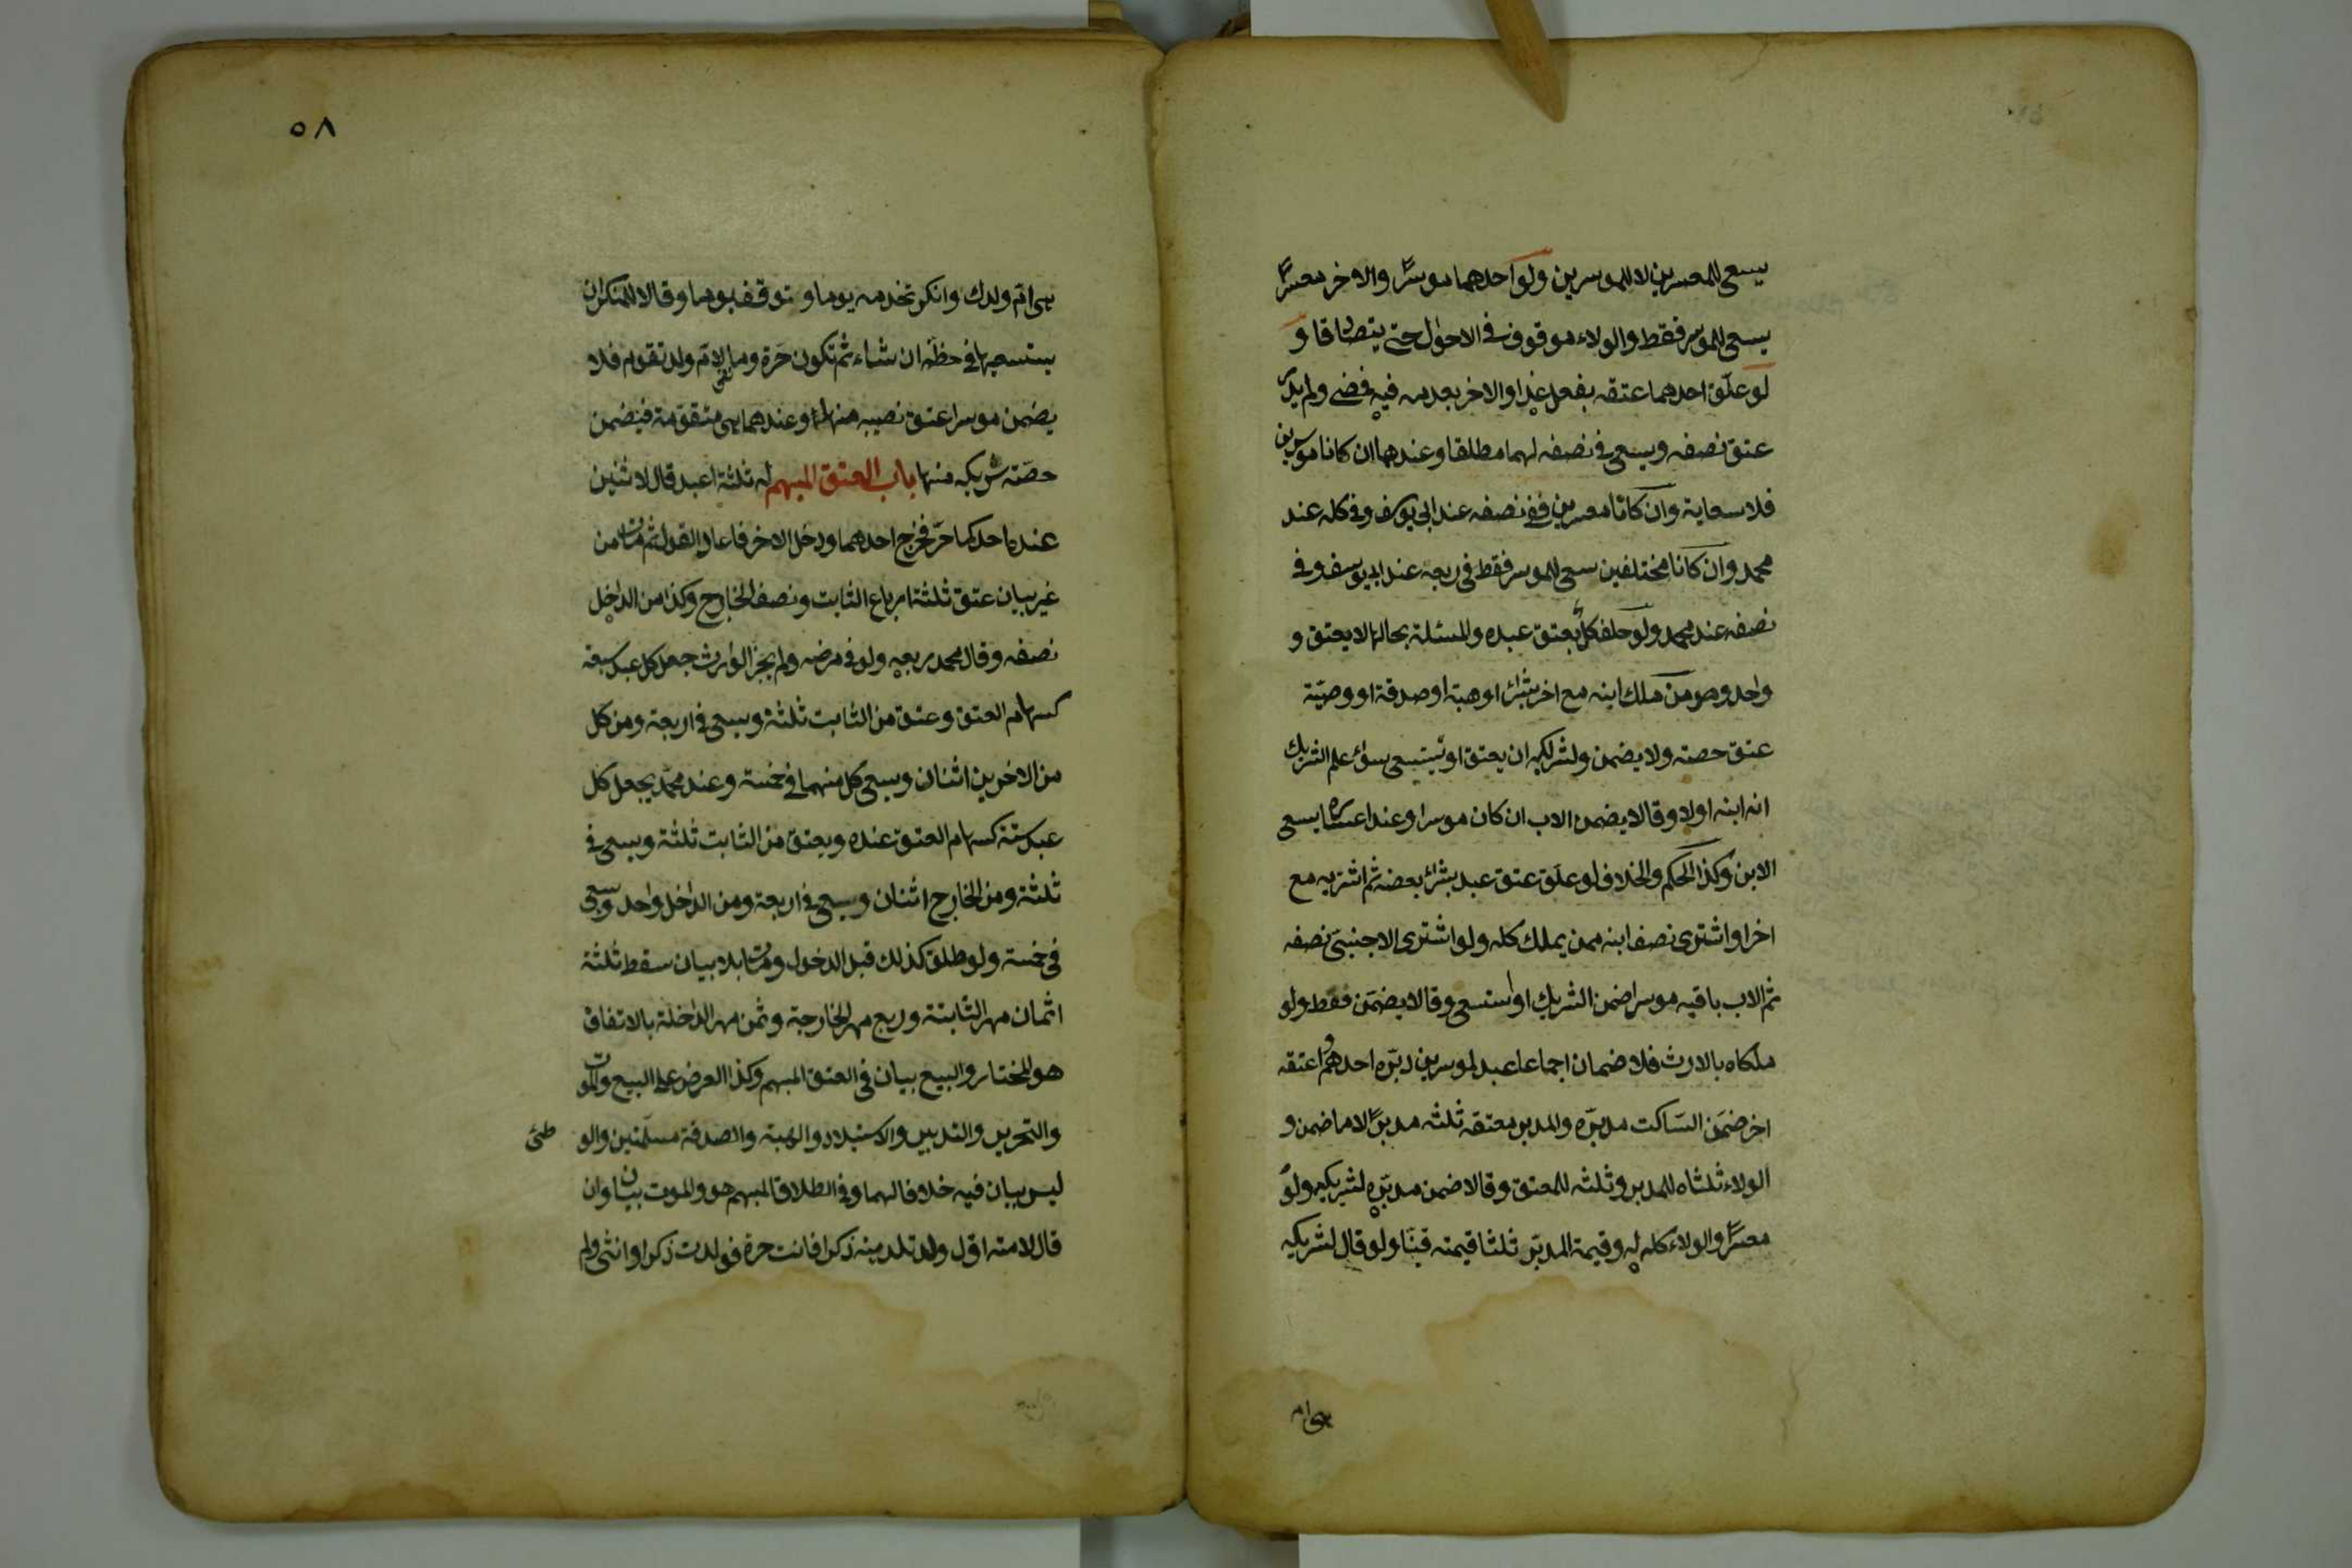 يسعى للمعسرين لا للموسرين ولو احدهما موسرًا والاخر معسرًا
يسعى للموسر فقط والولاء موقوف في الاحوال حتى يتصادقا و
لو علّق احدهما عتقه بفعل غدا والاخر بعدمه فيه فمضى ولم يدر
عتق نصفه ويسعى في نصفه لهما مطلقا وعندهما ان كانا موسرين
فلا سعاية وان كانا معسرين ففي نصفه عند ابي يوسف وفي كله عند
محمد وان كانا مختلفين سعى للموسر فقط في ربعه عند ابي يوسف وفي
نصفه عند محمد ولو حلف كلٌّ بعتق عبده والمسئلة بحالها لا يعتق و
واحد ومن ملك ابنه مع اخر بشراء او هبة او صدقة او وصيّة
عتق حصته ولا يضمن ولشريكه ان يعتق او يستسعى سواء علم الشريك
انه ابنه اولا وقالا يضمن الاب ان كان موسرا وعند اعساره يسعى
الابن وكذا الحكم والخلاف لو علّق عتق عبد بشراء بعضه ثم اشتريه مع
اخر او اشترى نصف ابنه ممن يملك كله ولو اشترى الاجنبيّ نصفه
ثم الاب باقيه موسرا ضمن الشريك او استسعى وقالا يضمّن فقط ولو
ملكاه بالارث فلا ضمان اجماعا عبد لموسرين دبّره احدهم واعتقه
اخر ضمّن السّاكت مدبّره والمدبر معتقه ثلثه مدبرًا لا ما ضمن و
الولاء ثلثاه للمدبر وثلثه للمعتق وقالا ضمن مدبّره لشريكيه ولو
معسرًا والولاء كله له وقيمة المدبّر ثلثا قيمته قنّا ولو قال لشريكه
هى ام
٥٨
هى امّ ولدك وانكر تخدمه يوما وتوقف يوما وقالا للمنكر ان
يستسعيها في حظّه ان شاء ثم تكون حرّة وما لامّ ولد تقوم فلا
يضمن موسر اعتق نصيبه منها وعندهما هى متقوّمة فيضمن
حصّة شريكه منها باب العتق المبهم له ثلثة اعبد قال لاثنين
عنده احدكما حرّ فخرج احدهما ودخل الاخر فاعاد القول ثم مات من
غير بيان عتق ثلثة ارباع الثابت ونصف الخارج وكذا من الداخل
نصفه وقال محمد ربعه ولو في مرضه ولم يجز الوارث جعل كل عبد سبعة
كسهام العتق وعتق من الثابت ثلثة ويسعى في اربعة ومن كل
من الاخرين اثنان ويسعى كل منهما في خمسة وعند محمّد يجعل كل
عبد ستة كسهام العتق عنده ويعتق من الثابت ثلثة ويسعى في
ثلثة ومن الخارج اثنان ويسعى في اربعة ومن الداخل واحد ويسعى
في خمسة ولو طلق كذلك قبل الدخول ومات بلا بيان سقط ثلثة
اثمان مهر الثابتة وربع مهر الخارجة وثمن مهر الداخلة بالاتفاق
هو المختار والبيع بيان في العتق المبهم وكذا العرض على البيع والموت
والتحرير والتدبير والاستيلاد والهبة والصدقة مسلّمتين والو
طئ
ليس ببيان فيه خلافا لهما وفي الطلاق المبهم هو والموت بيان وان
قال لامته اوّل ولد تلدينه ذكرا فانت حرة فولدت ذكرا وانثى ولم